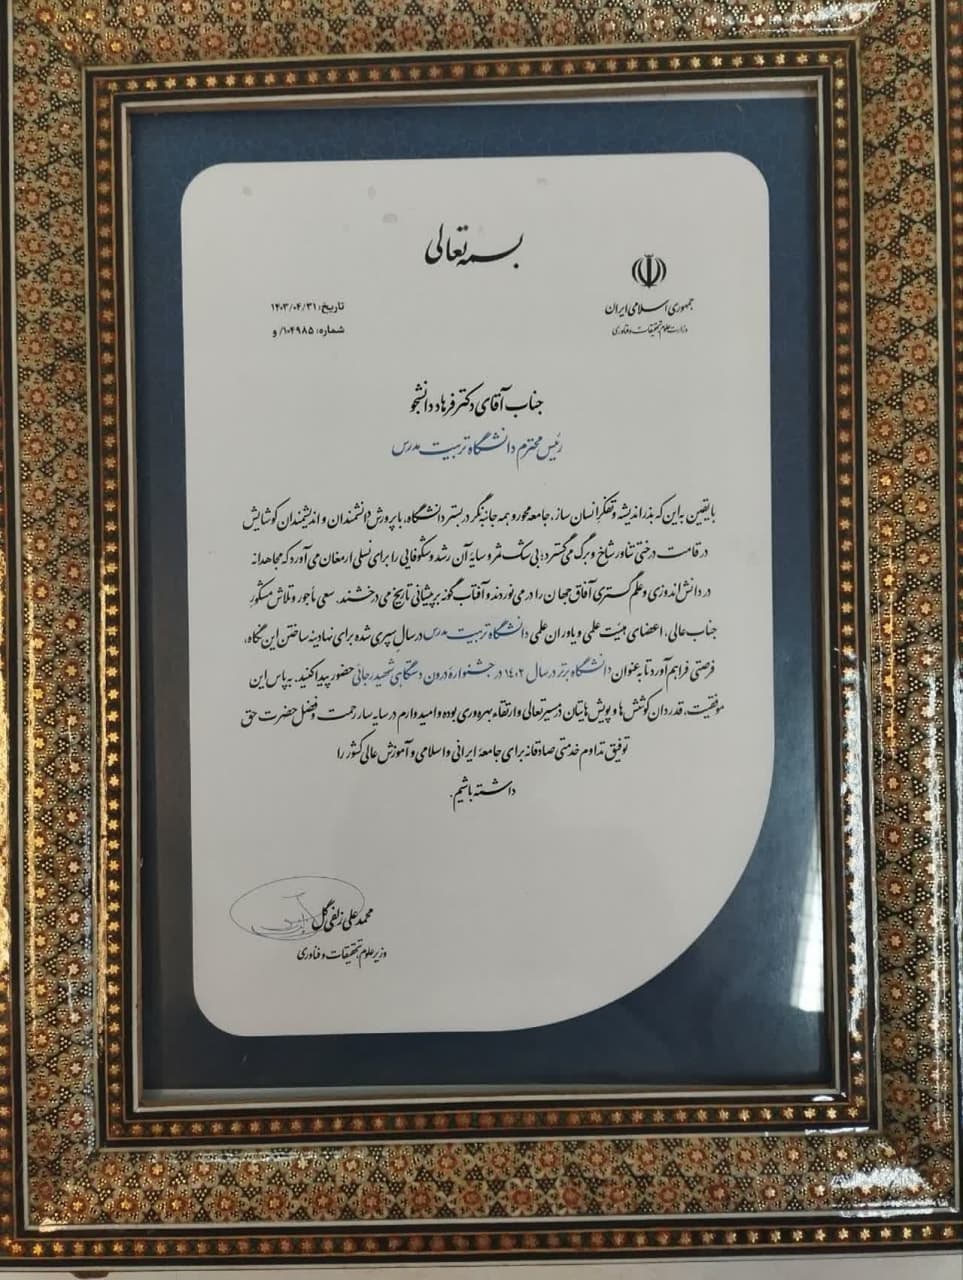 بسمه تعالی
جمهوری اسلامی ایران
وزارت علوم تحقیقات و فناوری
تاریخ: ۱۴۰۳/۰۴/۳۱
شماره: ۱۰۴۹۸۵/ و
جناب آقای دکتر فرهاد دانشجو
رئیس محترم دانشگاه تربیت مدرس
با یقین به این که بذر اندیشه و تفکر انسان ساز، جامعه محور و همه جانبه نگر در بستر دانشگاه، با پرورش دانشمندان و اندیشمندان کوشایش
در قامت درختی تناور شاخ و برگ می گسترد؛ بی شک ثمر و سایهٔ آن رشد و شکوفایی را برای نسلی ارمغان می آورد که مجاهدانه
در دانش اندوزی و علم گستری آفاق جهان را در می نوردند و آفتاب گونه بر پیشانی تاریخ می درخشند. سعی مأجور و تلاش مشکورِ
جناب عالی، اعضای هیئت علمی و یاوران علمی دانشگاه تربیت مدرس در سالِ سپری شده برای نهادینه ساختن این نگاه،
فرصتی فراهم آورد تا به عنوان دانشگاه برتر در سال ۱۴۰۲ در جشنوارهٔ درون دستگاهی شهید رجائی حضور پیدا کنید. به پاس این
موفقیت، قدردان کوشش ها و پویش هایتان در مسیر تعالی و ارتقاء بهره وری بوده و امیدوارم در سایه سار رحمت و فضل حضرت حق
توفیق تداوم خدمتی صادقانه برای جامعهٔ ایرانی و اسلامی و آموزش عالی کشور را
داشته باشیم.
محمد علی زلفی گل
وزیر علوم تحقیقات و فناوری